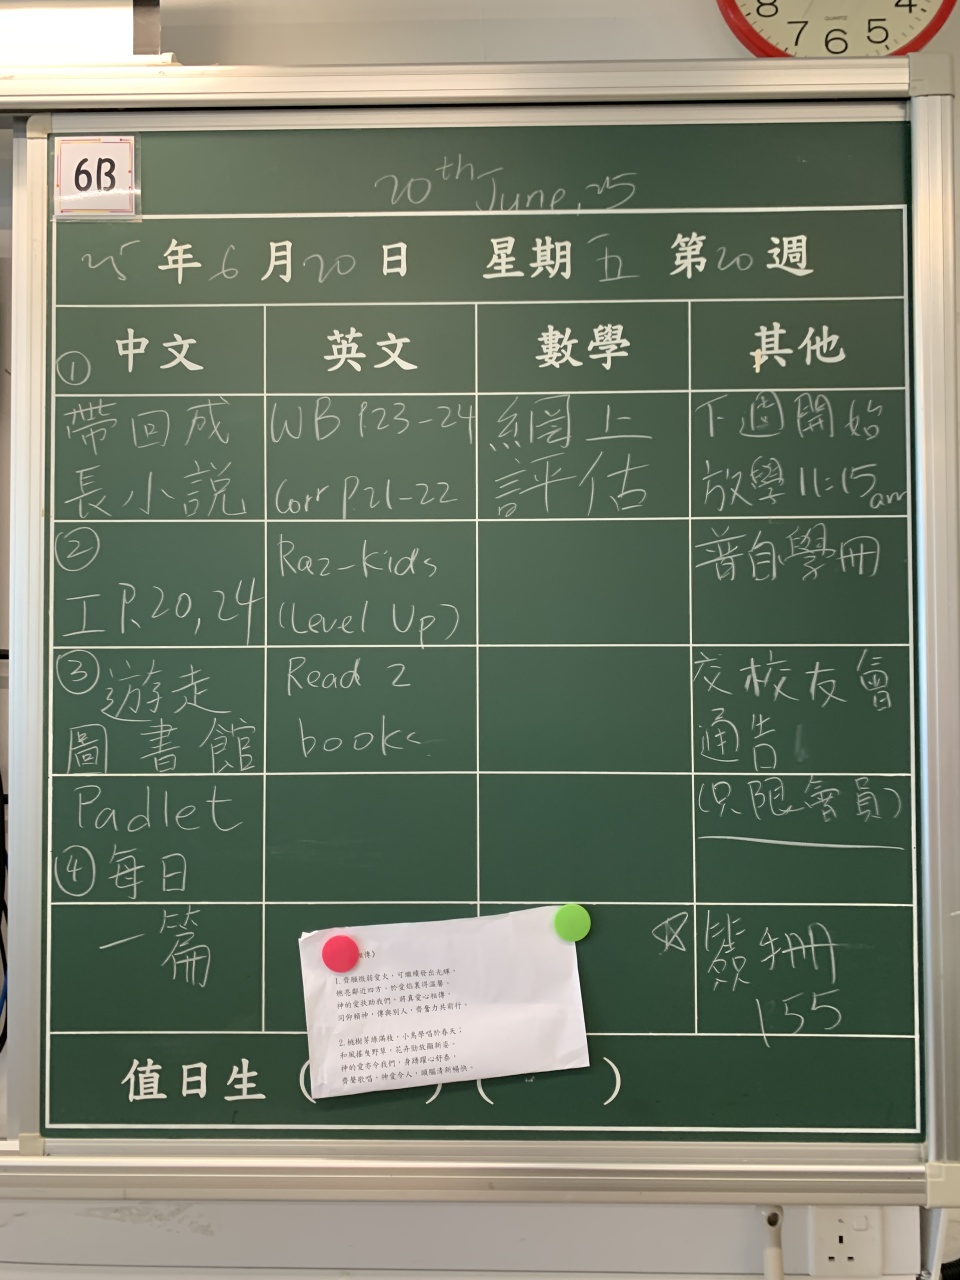 8 7 6 5 4
QUARTZ
6B
20th June, 25
25年6月20日 星期五 第20週
中文 英文 數學 其他
①
帶回成
長小說
②
工 P.20, 24
③ 遊走
圖書館
Padlet
④ 每日
一篇
WB P.23-24
Corr P.21-22
Raz-kids
(Level Up)
Read 2
books
網上
評估
下週開始
放學 11:15
am
普自學冊
交校友會
通告
(只限會員)
簽手冊
155
相傳）
1. 齊驅微弱愛火，可繼續發出光輝，
燃亮鄰近四方，於愛焰裏得溫馨。
神的愛扶助我們，將真愛心相傳，
同仰賴神，傳與別人，齊奮力共前行。
2. 桃樹芽綠滿枝，小鳥學唱於春天；
和風搖曳野草，花卉勃放顯新姿。
神的愛亦令我們，身踴躍心舒泰，
齊聲歌唱，神愛令人，頭腦清新暢快。
值日生 ( ) ( )